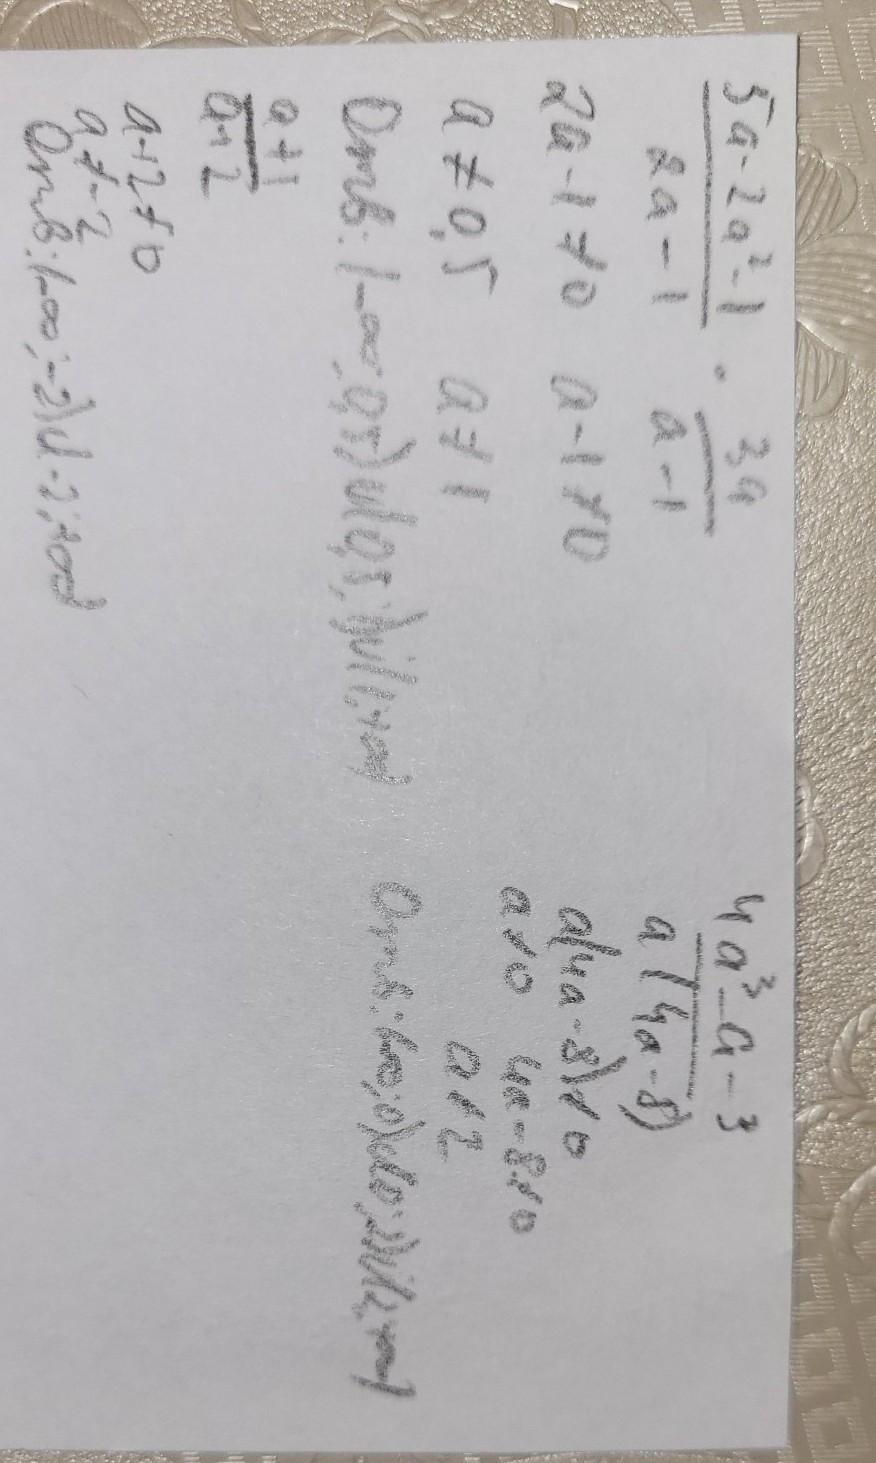 5a-2a²-1 / 2a-1 · 3a / a-1
2a-1≠0 a-1≠0
a≠0,5 a≠1
Отв: (-∞; 0,5)∪(0,5; 1)∪(1; +∞)
a+1 / a+2
a+2≠0
a≠-2
Отв: (-∞; -2)∪(-2; +∞)
4a³-a-3 / a(4a-8)
a(4a-8)≠0
a≠0 4a-8≠0
a≠2
Отв: (-∞; 0)∪(0; 2)∪(2; +∞)